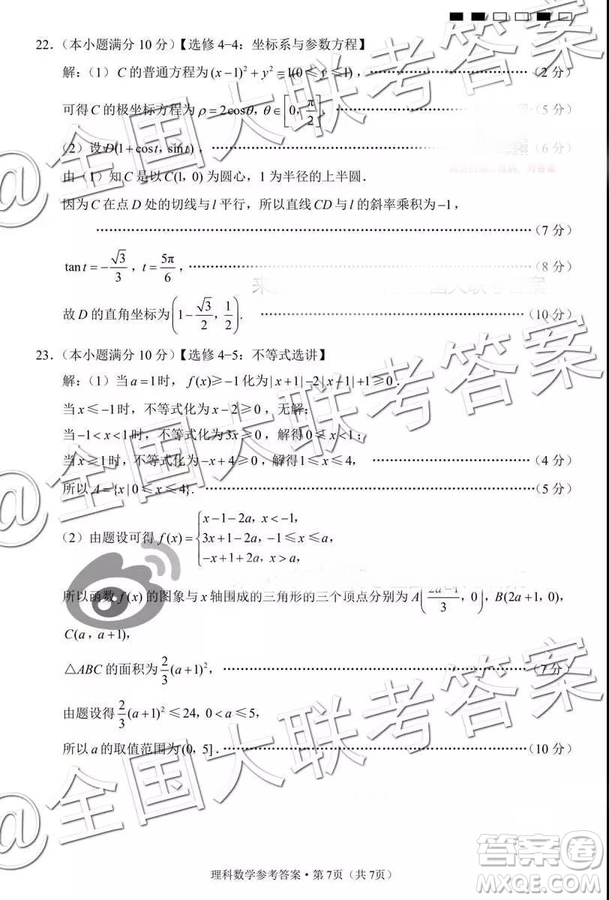 22.（本小题满分10分）【选修4−4：坐标系与参数方程】
解：（1）C的普通方程为(x−1)²+y²=1(0≤y≤1)，（2分）
可得C的极坐标方程为ρ=2cosθ，θ∈[0，π/2]，（5分）
（2）设D(1+cost，sint)，（6分）
由（1）知C是以C(1，0)为圆心，1为半径的上半圆．
因为C在点D处的切线与l平行，所以直线CD与l的斜率乘积为−1，
（7分）
tan t=−√3/3，t=5π/6，（8分）
故D的直角坐标为(1−√3/2，1/2)．（10分）
23.（本小题满分10分）【选修4−5：不等式选讲】
解：（1）当a=1时，f(x)≥−1化为|x+1|−2|x−1|+1≥0．
当x≤−1时，不等式化为x−2≥0，无解；
当−1<x<1时，不等式化为3x≥0，解得0≤x<1；
当x≥1时，不等式化为−x+4≥0，解得1≤x≤4，（4分）
所以A={x|0≤x≤4}．（5分）
（2）由题设可得f(x)={x−1−2a，x<−1，
3x+1−2a，−1≤x≤a，
−x+1+2a，x>a，
所以函数f(x)的图象与x轴围成的三角形的三个顶点分别为A(2a−1/3，0)，B(2a+1，0)，
C(a，a+1)，
△ABC的面积为2/3(a+1)²，（7分）
由题设得2/3(a+1)²≤24，0<a≤5，
所以a的取值范围为(0，5]．（10分）
理科数学参考答案·第7页（共7页）
@全国大联考答案
@全国大联考答案
@全国大联考答案
答案圈
MXQE.COM